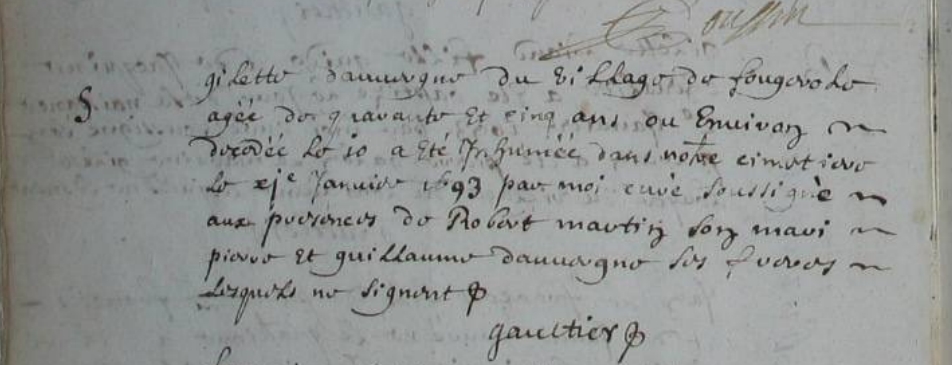 S
gilette dauuergne du Village de fougerole
agéé de quarante Et cinq ans ou Enuiron
decedéé Le 10 a Eté Inhuméé dans notre cimetiere
Le xje Januier 1693 par moi curé soussigné
aux presences de Robert martin son mari
pierre Et guillaume dauuergne ses freres
Lesquels ne signent
gaultier